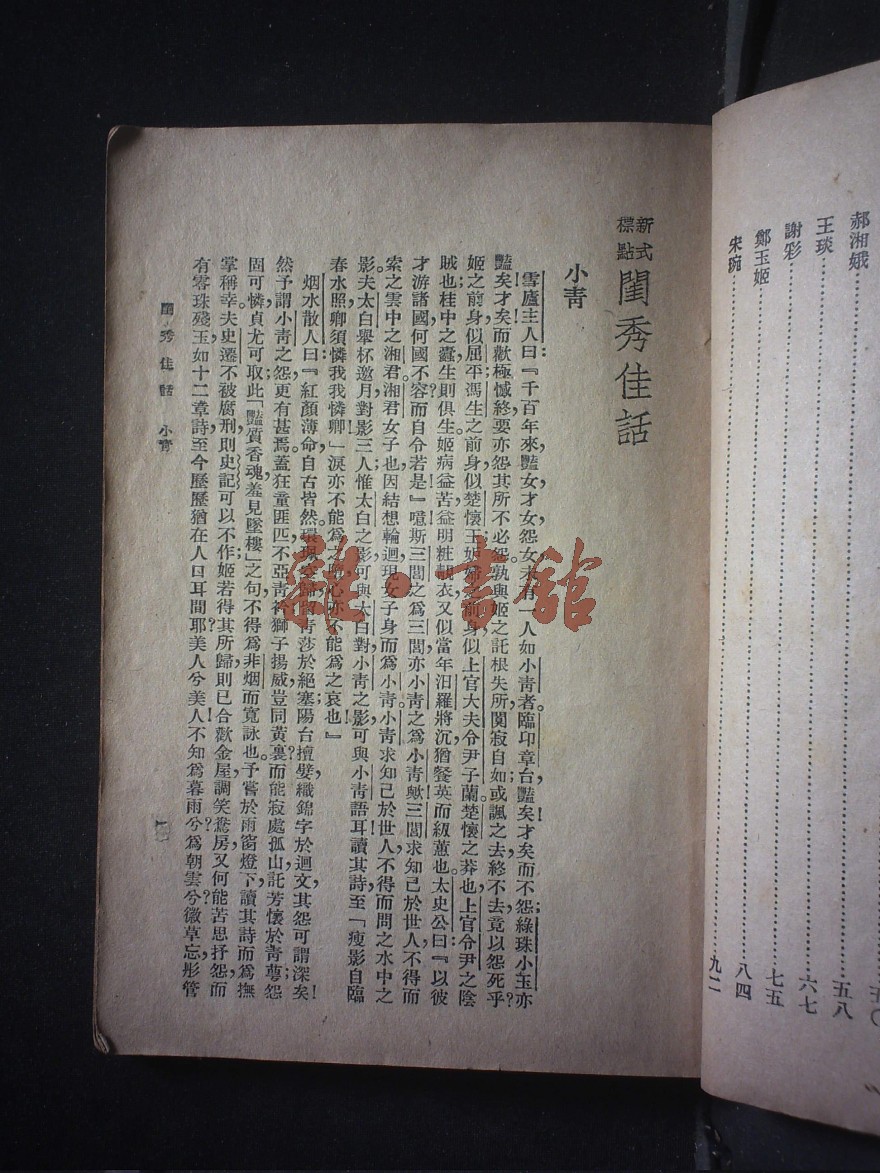 郝湘娥
王琰 五八
謝彩 六七
鄭玉姬 七五
宋琬 九二
八四
新式標點 閨秀佳話
小青
雪廬主人曰:『千百年來豔女才女怨女未有一人如小青者。臨邛章台豔矣才矣而不怨;綠珠小玉亦
豔矣!才矣!而歡極憾終要亦怨其所不必怨。孰與姬之託根失所闃寂自如或諷之去終不去竟以怨死乎?
姬之前身似屈平馮生之前身似楚懷王妬婦之前身似上官大夫令尹子蘭。楚懷之莽也上官令尹之陰
賊也桂中之蠹生則俱生。姬病益苦益明粧靚衣又似當年汨羅將沉猶餐英而紉蕙也。太史公曰:『以彼
才游諸國何國不容?而自令若是!』噫斯三閭之爲三閭亦小青之爲小青歟!三閭求知己於世人不得而
索之雲中之湘君湘君女子也因結想輪迴現女子身而爲小青。小青求知己於世人不得而問之水中之
影。夫太白舉杯邀月對影三人惟太白之影可與太白對小青之影可與小青語耳!讀其詩至「瘦影自臨
春水照卿須憐我我憐卿」淚亦不能爲之心亦不能爲之哀也!』
烟水散人曰:『紅顏薄命自古皆然。環珮歸青莎於絕塞;陽台擅孽織錦字於迴文,其怨可謂深矣!
然予謂小青之怨更有甚焉。蓋狂童匪匹不亞青衿獅子揚威豈同黃裏?而能寂處孤山,託芳懷於青蕚,怨
固可憐貞尤可取。此「豔質香魂羞見墜樓」之句不得爲非烟而寬詠也。予嘗於雨窗燈下,讀其詩而爲撫
掌稱幸。夫史遷不被腐刑則史記可以不作;姬若得其所歸則已合歡金屋調笑鴛房,又何能苦思抒怨而
有零珠殘玉如十二章詩至今歷歷猶在人口耳間耶?美人兮美人不知爲暮雨兮?爲朝雲兮?徵草忘彤管
閨秀佳話 小青
雜·書館